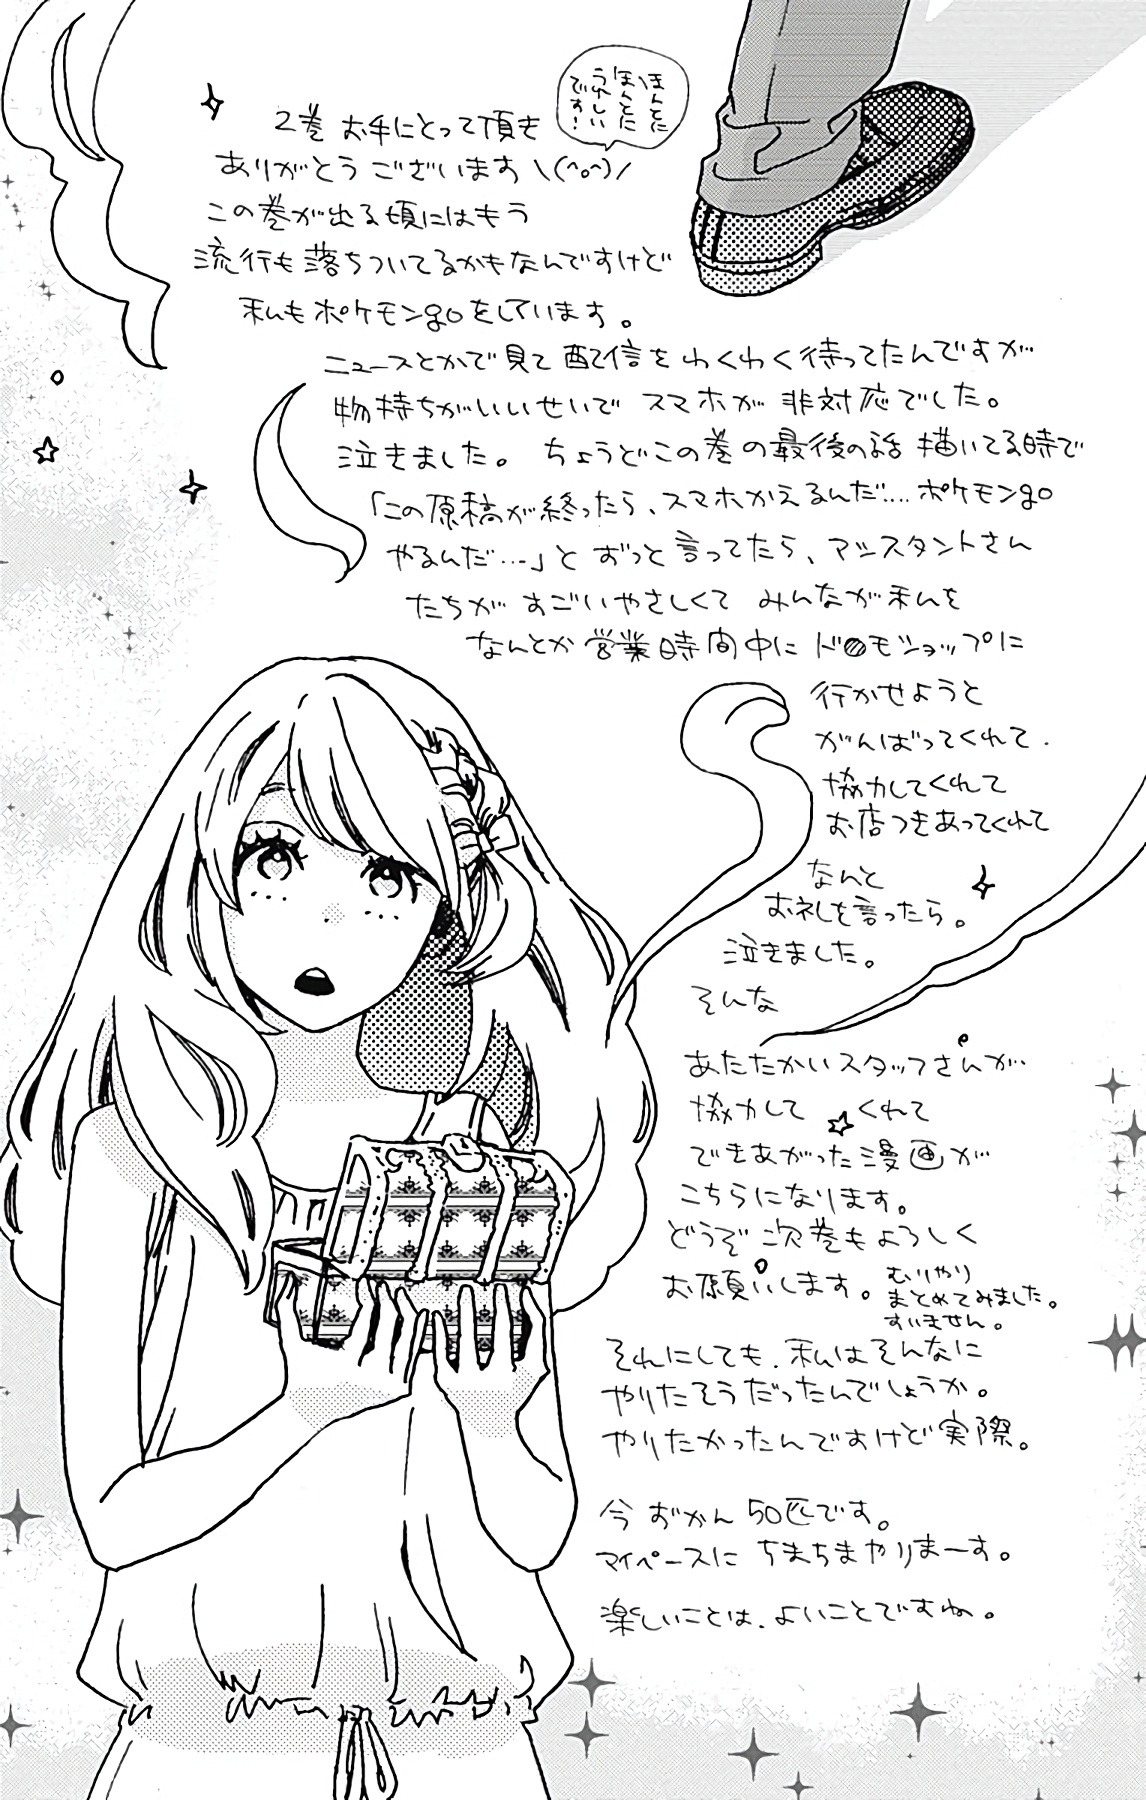 2巻 お手にとって頂き
ありがとうございます\(^o^)/
ほんとに
ほんとに
うれしい
です!
この巻が出る頃にはもう
流行も落ちついてるかもなんですけど
私もポケモンgoをしています。
ニュースとかで見て配信をわくわく待ってたんですが
物持ちがいいせいでスマホが非対応でした。
泣きました。ちょうどこの巻の最後の話描いてる時で
「この原稿が終ったら、スマホかえるんだ…ポケモンgo
やるんだ…」とずっと言ってたら、アシスタントさん
たちがすごいやさしくてみんなが私を
なんとか営業時間中にド●モショップに
行かせようと
がんばってくれて.
協力してくれて
お店つきあってくれて
なんと
お礼を言ったら。
泣きました。
そんな
あたたかいスタッフさんが
協力して☆くれて
できあがった漫画が
こちらになります。
どうぞ次巻もよろしく
お願いします。
むりやり
まとめてみました。
すいません。
それにしても、私はそんなに
やりたそうだったんでしょうか。
やりたかったんですけど実際。
今 ずかん50匹です。
マイペースにちまちまやりまーす。
楽しいことは、よいことですね。